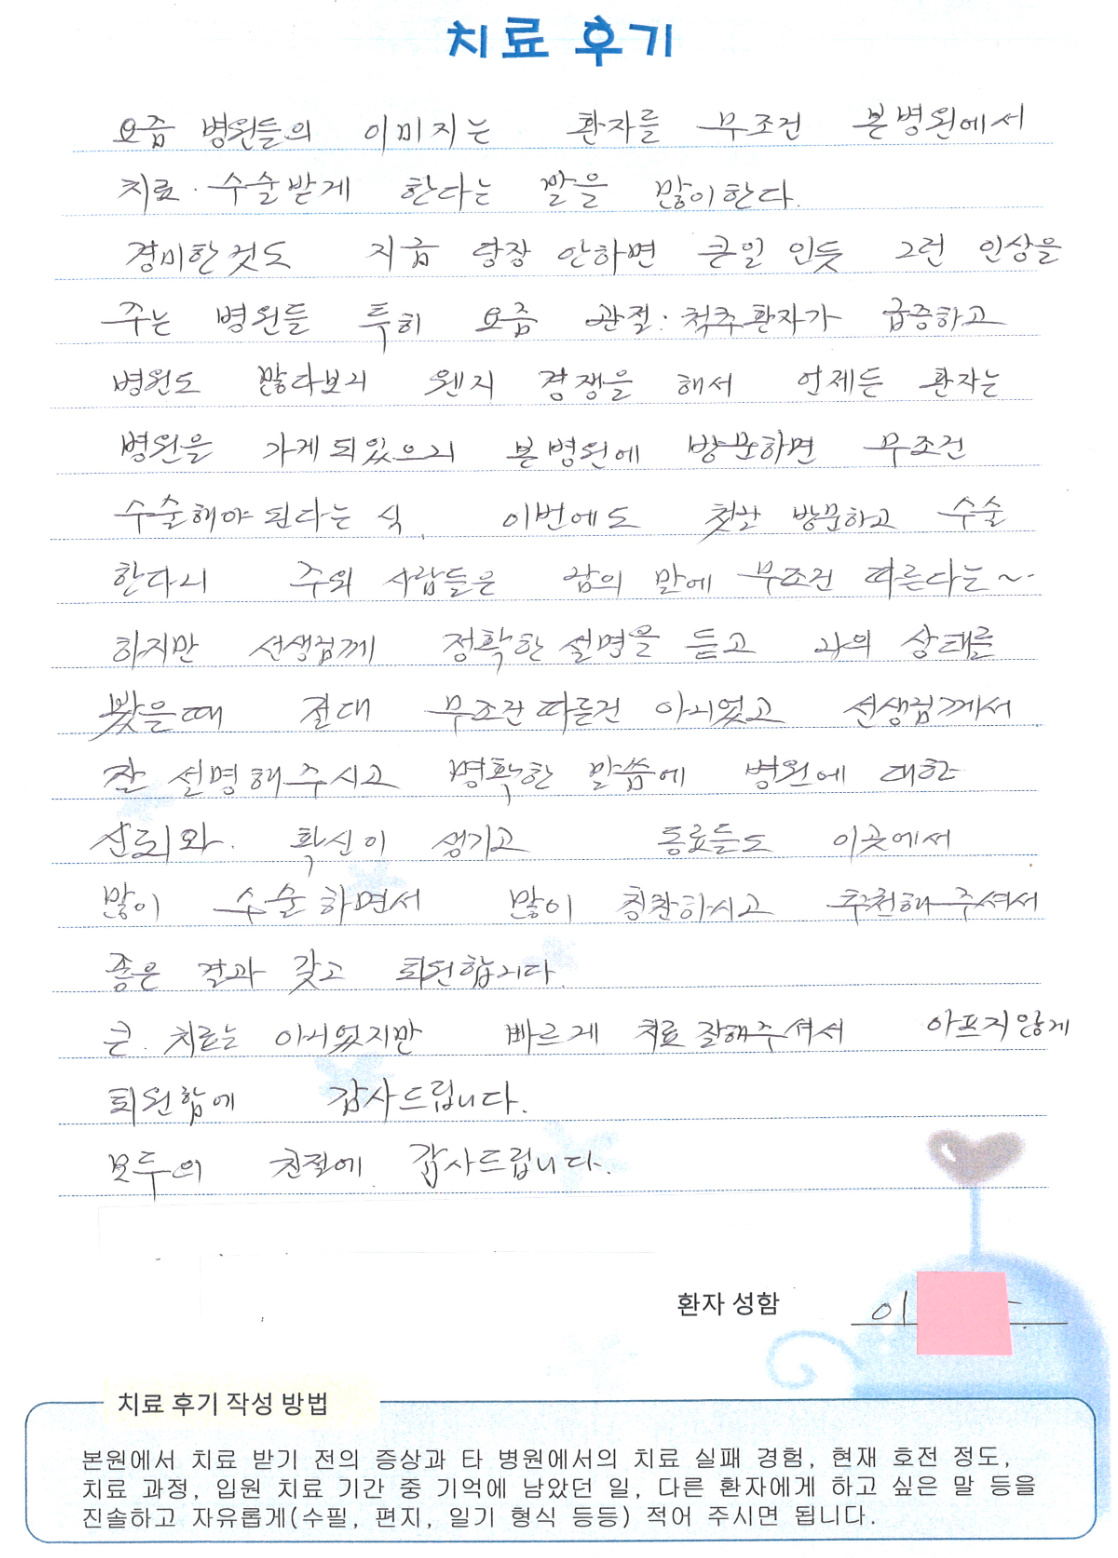 치료 후기
요즘 병원들의 이미지는 환자를 무조건 본병원에서
치료·수술받게 한다는 말을 많이한다.
경미한것도 지금 당장 안하면 큰일 인듯 그런 인상을
주는 병원들 특히 요즘 관절·척추환자가 급증하고
병원도 많다보니 웬지 경쟁을 해서 언제든 환자는
병원을 가게되있으니 본병원에 방문하면 무조건
수술해야 된다는 식, 이번에도 첫날 방문하고 수술
한다니 주위 사람들은 남의 말에 무조건 따른다는~
하지만 선생님께 정확한 설명을 듣고 나의 상태를
봤을때 절대 무조건 따른건 아니었고 선생님께서
잘 설명해주시고 명확한 말씀에 병원에 대한
신뢰와 확신이 생기고 동료들도 이곳에서
많이 수술하면서 많이 칭찬하시고 추천해주셔서
좋은 결과 갖고 퇴원합니다.
큰 치료는 아니었지만 빠르게 치료 잘해주셔서 아프지않게
퇴원함에 감사드립니다.
모두의 친절에 감사드립니다.
환자 성함 이
치료 후기 작성 방법
본원에서 치료 받기 전의 증상과 타 병원에서의 치료 실패 경험, 현재 호전 정도,
치료 과정, 입원 치료 기간 중 기억에 남았던 일, 다른 환자에게 하고 싶은 말 등을
진솔하고 자유롭게(수필, 편지, 일기 형식 등등) 적어 주시면 됩니다.